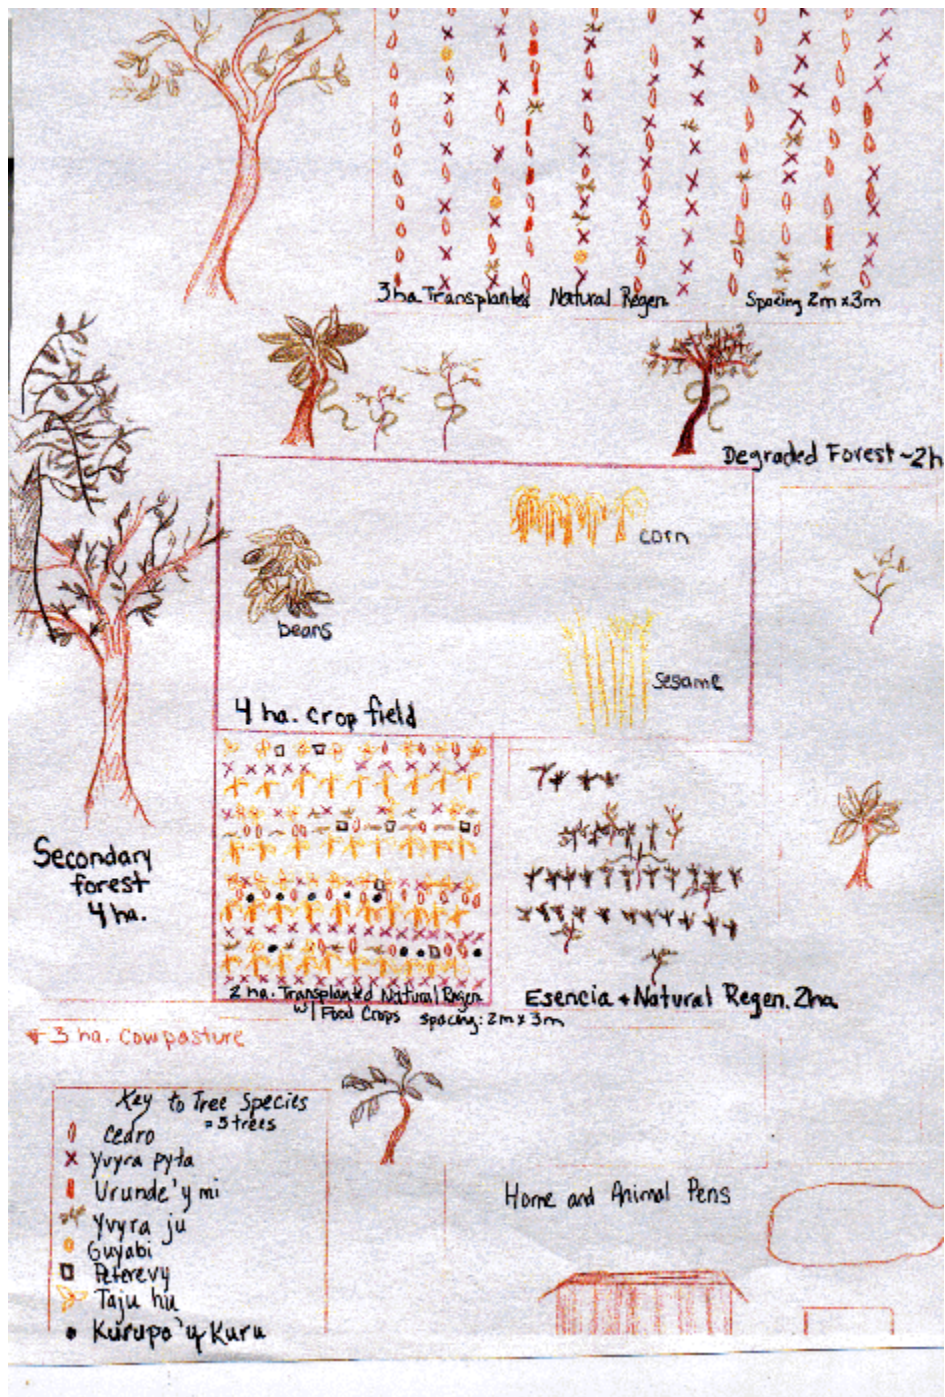 3 ha. Transplanted Natural Regen. Spacing 2m x 3m
Degraded Forest ~2h
corn
beans
sesame
4 ha. crop field
Secondary
forest
4 ha.
2 ha. Transplanted Natural Regen.
w/ Food Crops spacing: 2m x 3m
Esencia + Natural Regen. 2ha
3 ha. Cow pasture
Key to Tree Species
= 5 trees
Cedro
Yvyra pyta
Urunde'y mi
Yvyra ju
Guyabi
Peterevy
Taju hu
Kurupa'y Kuru
Home and Animal Pens